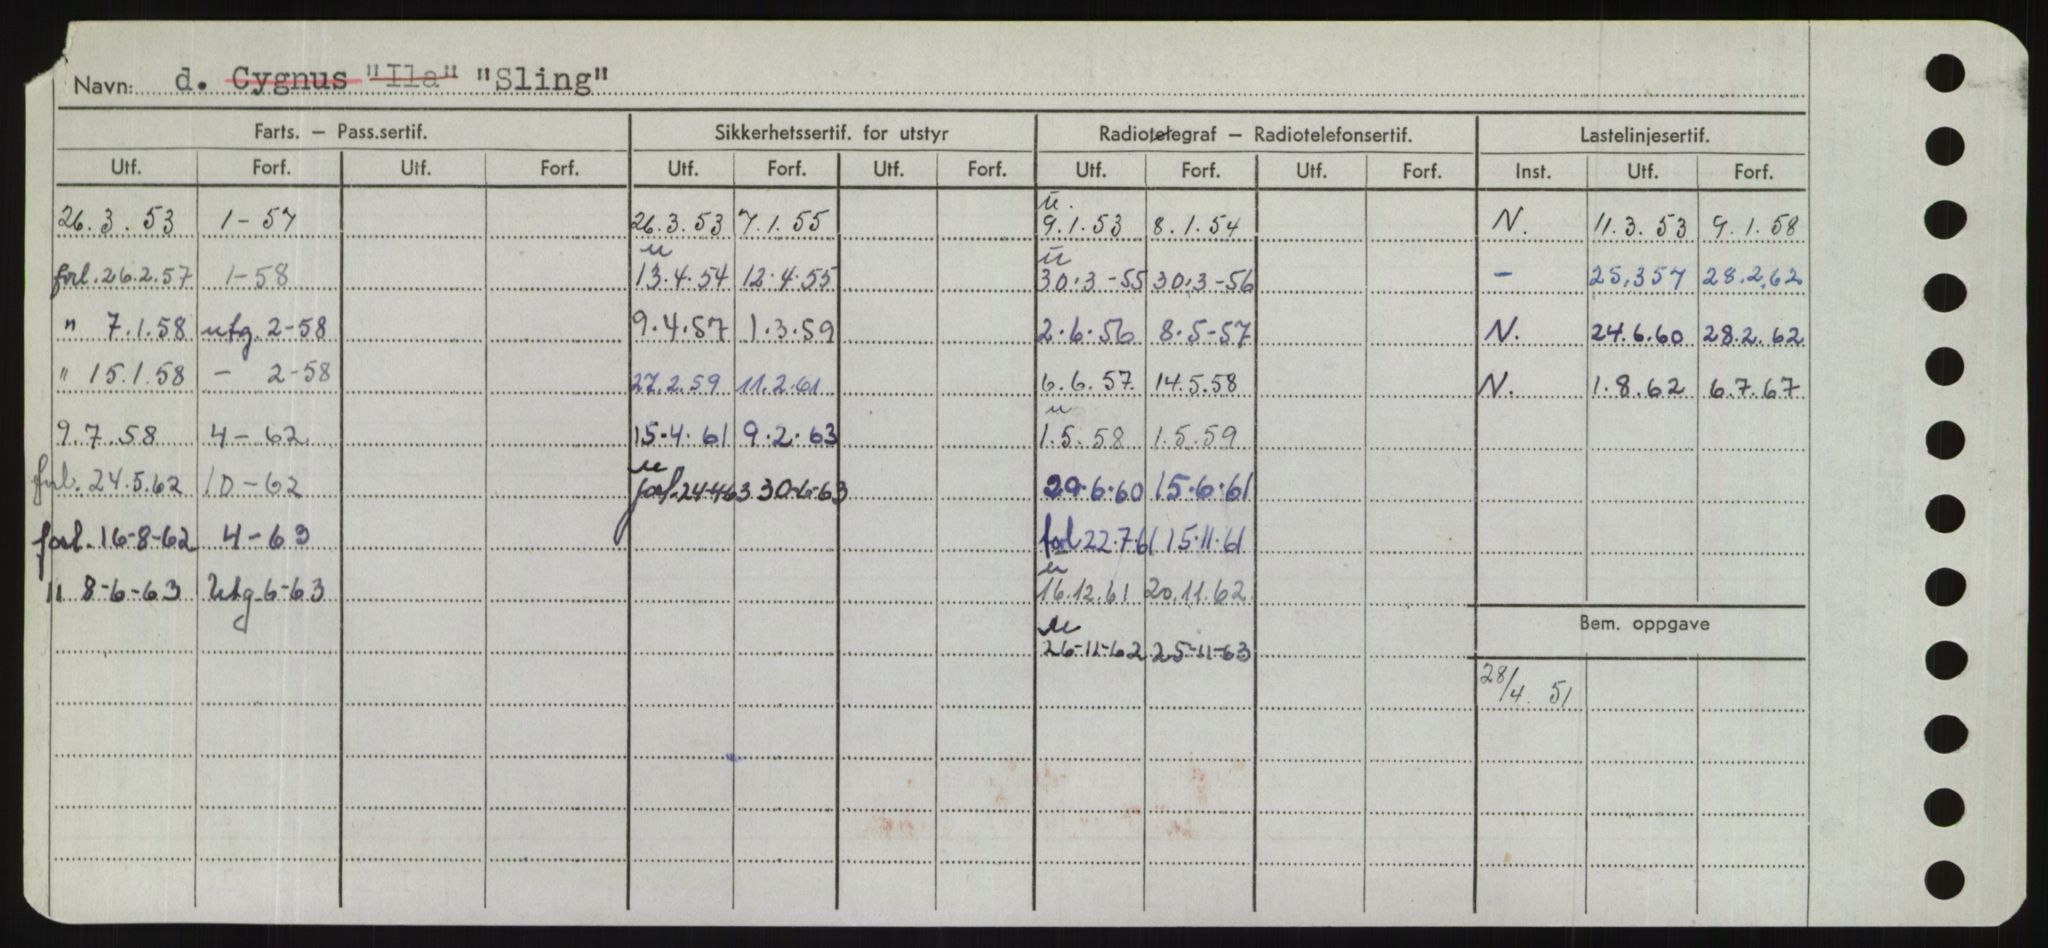 Navn: d. Cygnus "Ila" "Sling"
Farts. – Pass.sertif. Sikkerhetssertif. for utstyr Radiotelegraf – Radiotelefonsertif. Lastelinjesertif.
Utf. Forf. Utf. Forf. Utf. Forf. Utf. Forf. Utf. Forf. Utf. Forf. Inst. Utf. Forf.
u.
26.3.53 1-57 26.3.53 7.1.55 9.1.53 8.1.54 N. 11.3.53 9.1.58
u u
forl. 26.2.57 1-58 13.4.54 12.4.55 30.3-55 30.3-56 – 25.357 28.2.62
" 7.1.58 utg. 2-58 9.4.57 1.3.59 2.6.56 8.5-57 N. 24.6.60 28.2.62
" 15.1.58 – 2-58 27.2.59 11.2.61 6.6.57 14.5.58 N. 1.8.62 6.7.67
u
9.7.58 4-62 15.4.61 9.2.63 1.5.58 1.5.59
u
forl. 24.5.62 10-62 forl. 24-4-63 30-6-63 29.6.60 15.6.61
forl. 16-8-62 4-63 forl 22.7.61 15.11.61
u
" 8-6-63 Utg 6-63 16.12.61 20.11.62
u
26-11-62 25-11-63
Bem. oppgave
28/4. 51